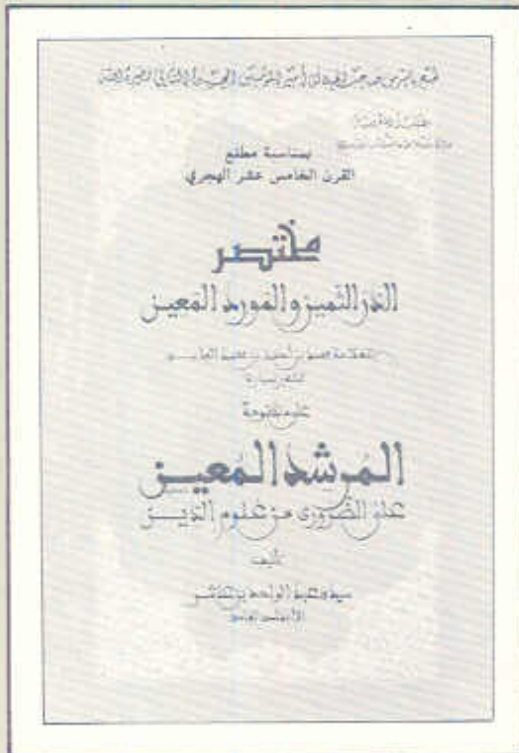 طبع بأمر من صاحب الجلالة أمير المؤمنين الحسن الثاني نصره الله
المملكة المغربية
بمناسبة مطلع
القرن الخامس عشر الهجري
مختصر
الدر الثمين والمورد المعين
للعلامة محمد بن أحمد بن محمد الفاسي
الشهير بميارة
على منظومة
المرشد المعين
على الضروري من علوم الدين
تأليف
سيدي عبد الواحد بن عاشر